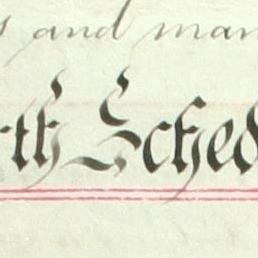 s and man
rth Sched